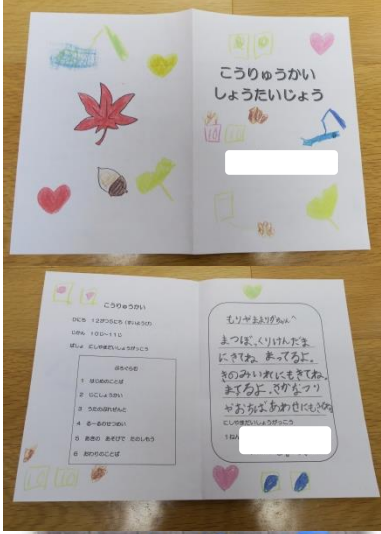 こうりゅうかい
しょうたいじょう
10
こうりゅうかい
ひにち
じかん 10じ~11じ
ばしょ にしやまだいしょうがっこう
ぷろぐらむ
1 はじめのことば
2 じこしょうかい
3 うたのぷれぜんと
4 るーるのせつめい
5 あきの あそびで たのしもう
6 おわりのことば
10
まつぼっくりけんだま
にきてね。まってるよ。
きのみいれにもきてね。
まてるよ。さかなつり
やおちばあわせにもきてね
にしやまだいしょうがっこう
1ねん